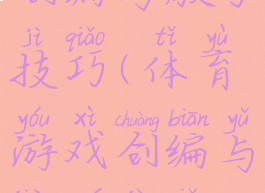 jì qiǎo tǐ yù
技巧(体育
yóu xì chuàng biān yǔ
游戏创编与